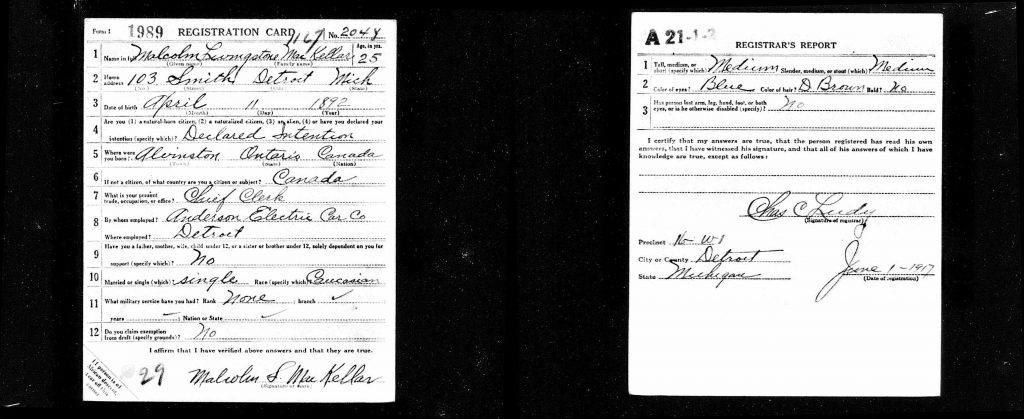 Form 1 1989 REGISTRATION CARD 167 No. 2044
1 Name in full Malcolm Livingstone MacKellar Age, in yrs. 25
(Given name) (Family name)
2 Home address 103 Smith Detroit Mich
(No.) (Street) (City) (State)
3 Date of birth April 11 1892
(Month) (Day) (Year)
4 Are you (1) a natural-born citizen, (2) a naturalized citizen, (3) an alien, (4) or have you declared your
intention (specify which)? Declared Intention
5 Where were you born? Alvinston Ontario Canada
(Town) (State) (Nation)
6 If not a citizen, of what country are you a citizen or subject? Canada
7 What is your present trade, occupation, or office? Chief Clerk
8 By whom employed? Anderson Electric Car Co
Where employed? Detroit
9 Have you a father, mother, wife, child under 12, or a sister or brother under 12, solely dependent on you for
support (specify which)? No
10 Married or single (which)? single Race (specify which)? Caucasian
11 What military service have you had? Rank None ; branch ✓
years ✓ ; Nation or State ✓
12 Do you claim exemption from draft (specify grounds)? No
I affirm that I have verified above answers and that they are true.
29 Malcolm L. MacKellar
If person is of African descent, tear off this corner
A 21-1-2
REGISTRAR'S REPORT
1 Tall, medium, or short (specify which)? Medium Slender, medium, or stout (which)? Medium
2 Color of eyes? Blue Color of hair? D. Brown Bald? No
3 Has person lost arm, leg, hand, foot, or both eyes, or is he otherwise disabled (specify)? No
I certify that my answers are true, that the person registered has read his own
answers, that I have witnessed his signature, and that all of his answers of which I have
knowledge are true, except as follows:
Chas C Ludy
(Signature of registrar)
Precinct
City or County Detroit
State Michigan June 1-1917
(Date of registration)